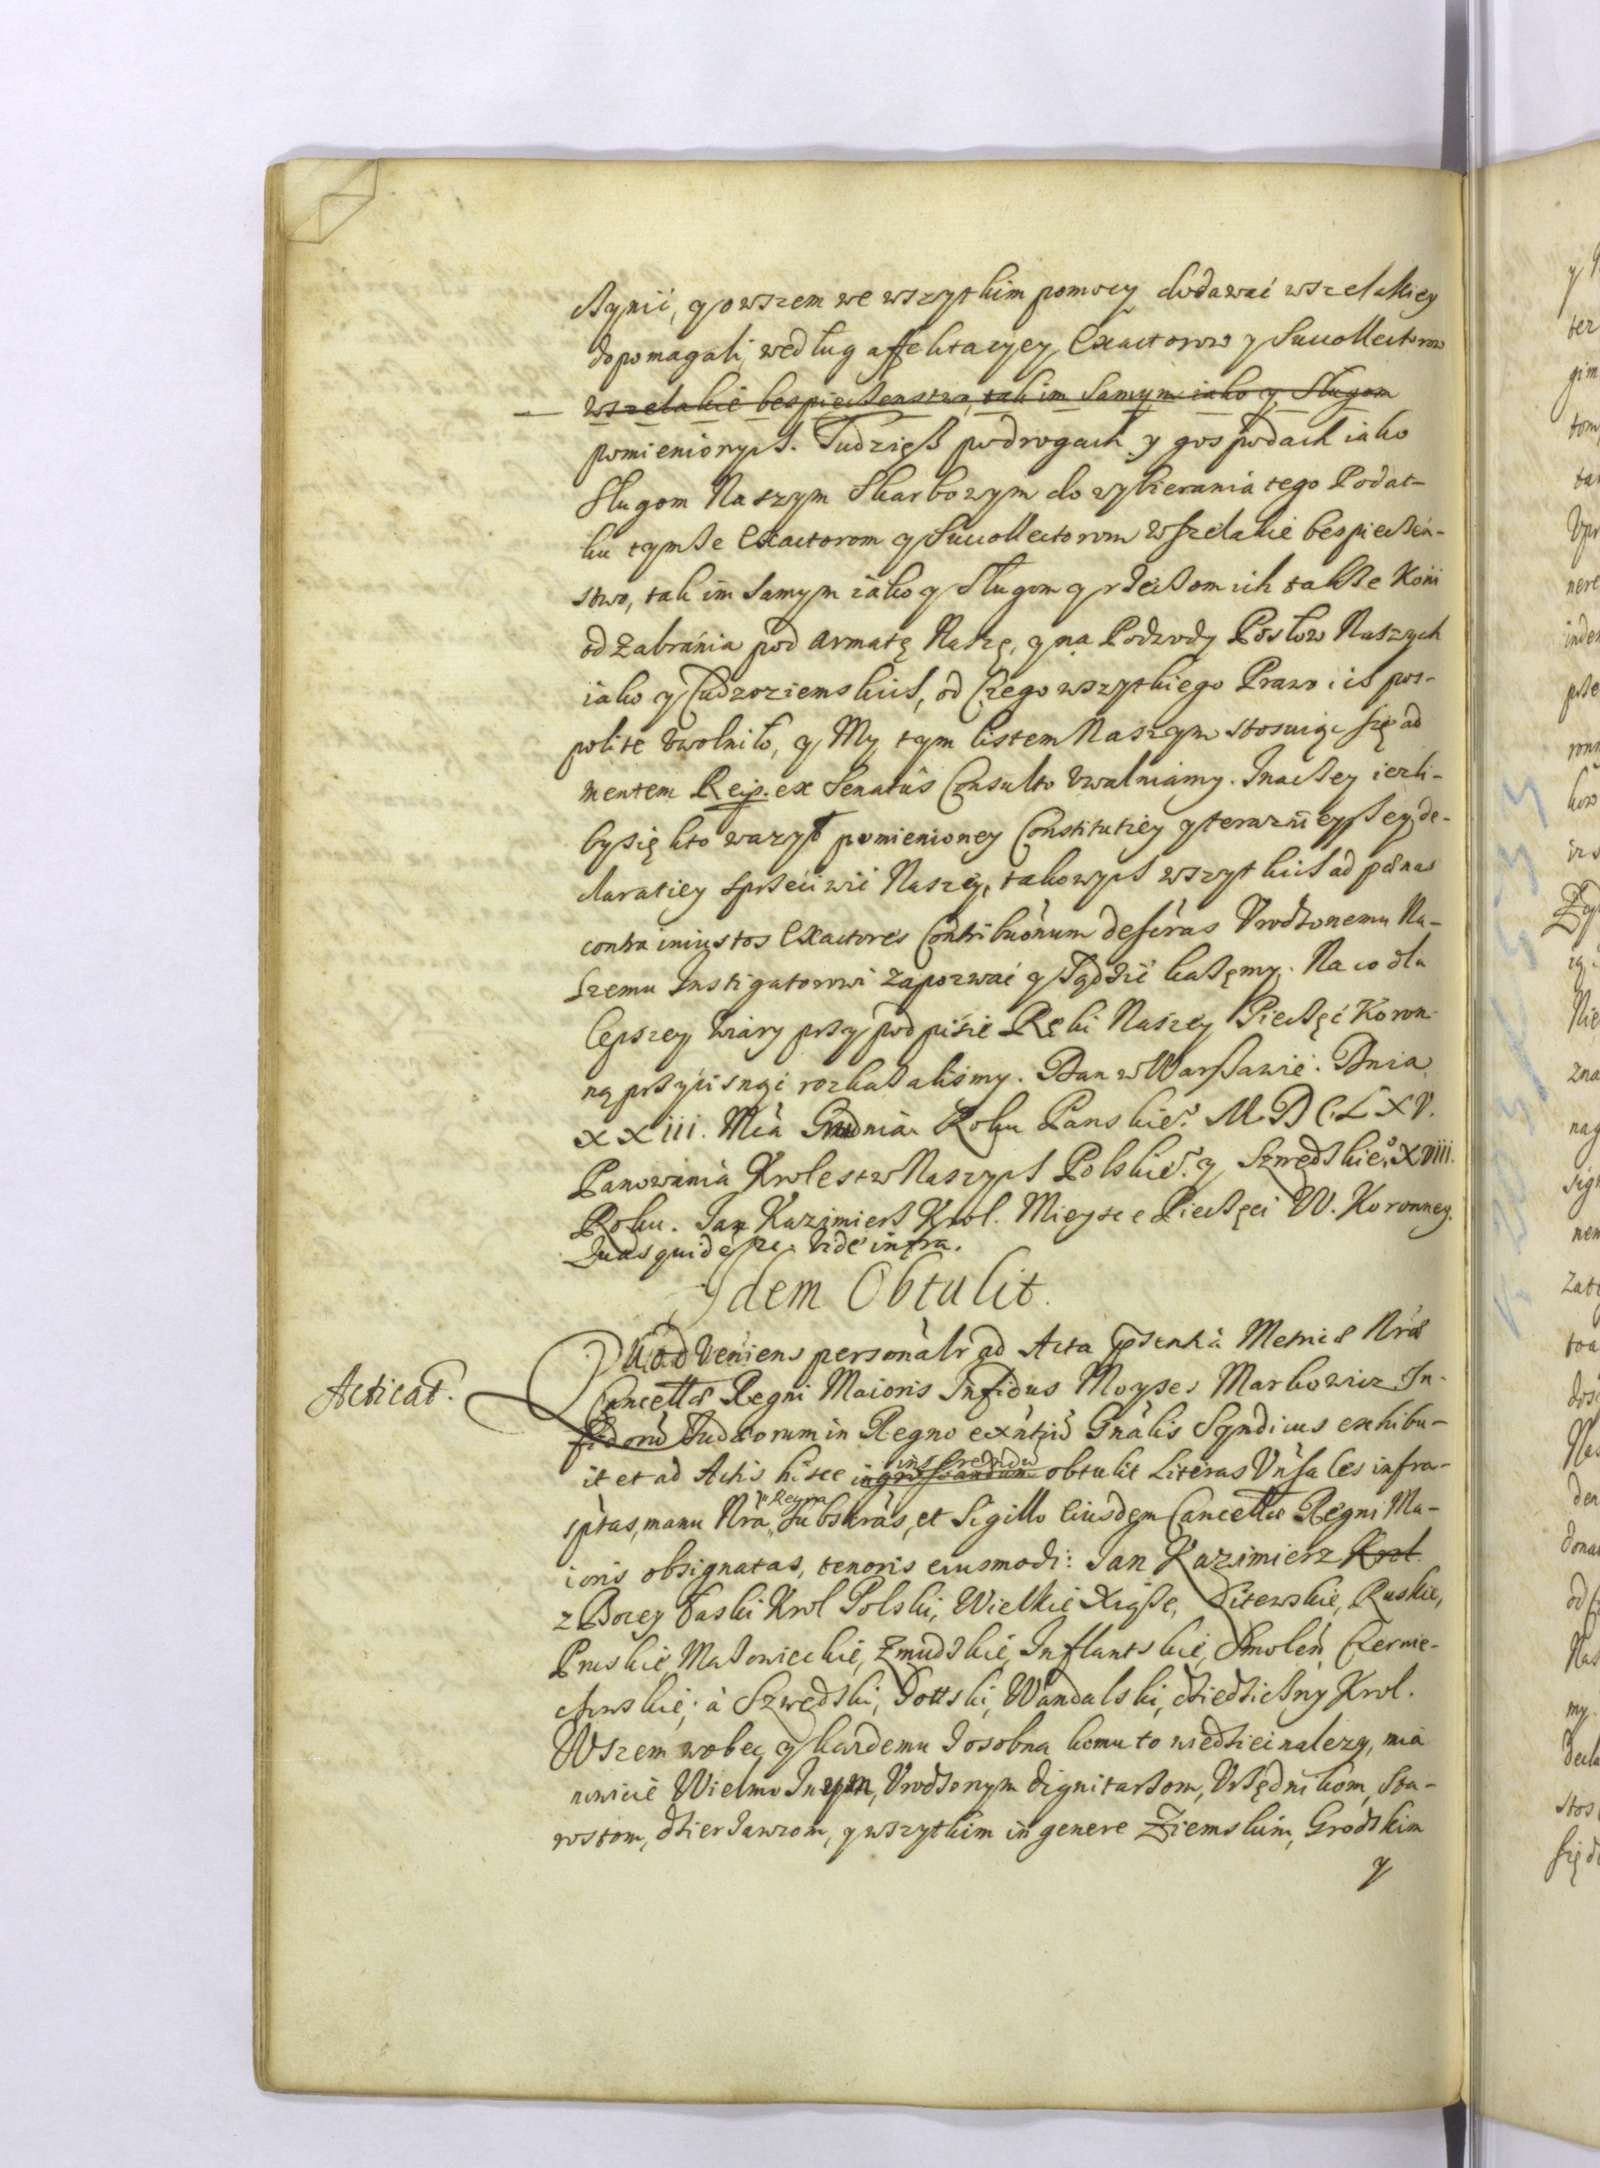 czynić, y owszem we wszytkim pomocy dodawać wszelakiey
dopomagali, według affektacyey Exactorow y Succollectorow
wszelakie bespieczenstwo, tak im samym iako y sługom
pomienionych. Tudziesz po drogach y gospodach iako
sługom Naszym Skarbowym do wybierania tego Podat-
ku tymże Exactorom y Succollectorom wszelakie bespieczen-
stwo, tak im samym iako y sługom y rzeczom ich także Koni
od zabrania pod armatę Naszę, y na Podwody Posłow Naszych
iako y Cudzoziemskich, od czego wszytkiego Prawo ich pos-
polite uwolniło, y My tym listem Naszym stosuiąc się ad
mentem Reip. ex Senatus Consulto uwalniamy. Inaczey iezli-
by się kto ważył pomienioney Constitutiey y teraznieyszey de-
claratiey sprzeciwić Naszey, takowych wszytkich ad pœnas
contra iniustos Exactores Contribuonum descras Urodzonemu Na-
szemu Instigatorowi zapozwać y sądzić każemy. Na co dla
lepszey wiary przy podpisie Ręki Naszey Pieczęć Koron-
ną przycisnąć rozkazaliśmy. Dan w Warszawie. Dnia
XXIII. Mca Grudnia Roku Panskieo. M.DC.LXV.
Panowania Krolestw Naszych Polskieo. y Szwedskieo. XVIII.
Roku. Jan Kazimierz Krol. Mieysce Pieczęci W. Koronney.
Quas quidē pr. vide infra.
Idem Obtulit.
Acticat.
Quod veniens personalr ad Acta pͦsentia Metrices Nræ
Cancellæ Regni Maioris Infidus Moyses Markowicz In-
fidorū Judæorum in Regno exntiū Gnalis Syndicus exhibu-
it et ad Actis hisce ingrossandum inserendū obtulit Literas Unsales infra-
sptas, manu Nra "Regia subscras, et Sigillo eiusdem Cancellæ Regni Ma-
ioris obsignatas, tenoris eiusmodi: Jan Kazimierz Krol
z Bozey Łaski Krol Polski, Wielkie Xiąże, Litewskie, Ruskie,
Pruskie, Mazowieckie, Zmudzkie, Inflantskie, Smolen, Czernie-
chowskie, a Szwedski, Gottski, Wandalski, dziedziczny Krol.
Wszem wobec y kazdemu z osobna komu to wiedziec nalezy, mia
nowicie Wielmożnym, Urodzonym dignitarzom, Urzędnikom, Sta-
rostom, dzierzawcom, y wszytkim in genere Ziemskim, Grodskim
y